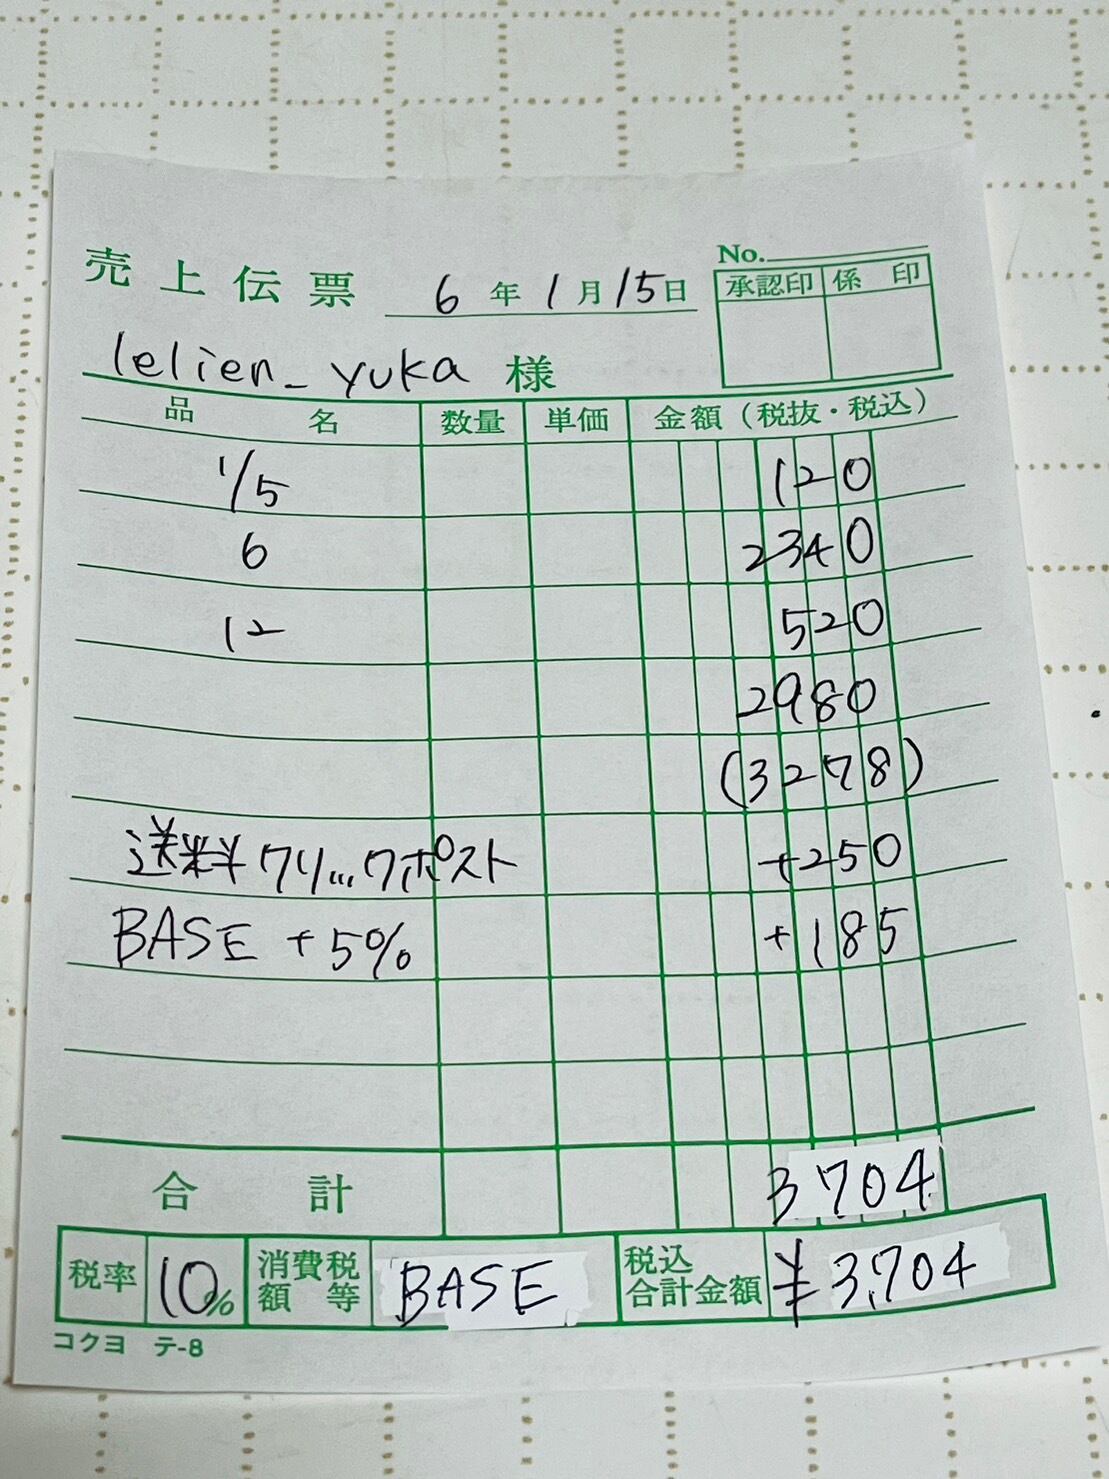 No.
売上伝票 6年1月15日
承認印 係印
lelien_yuka 様
品名 数量 単価 金額(税抜・税込)
1/5 120
6 2340
12 520
2980
(3278)
送料 クリックポスト +250
BASE +5% +185
合計 3704
税率 10% 消費税額等 BASE 税込合計金額 ¥3,704
コクヨ テ-8